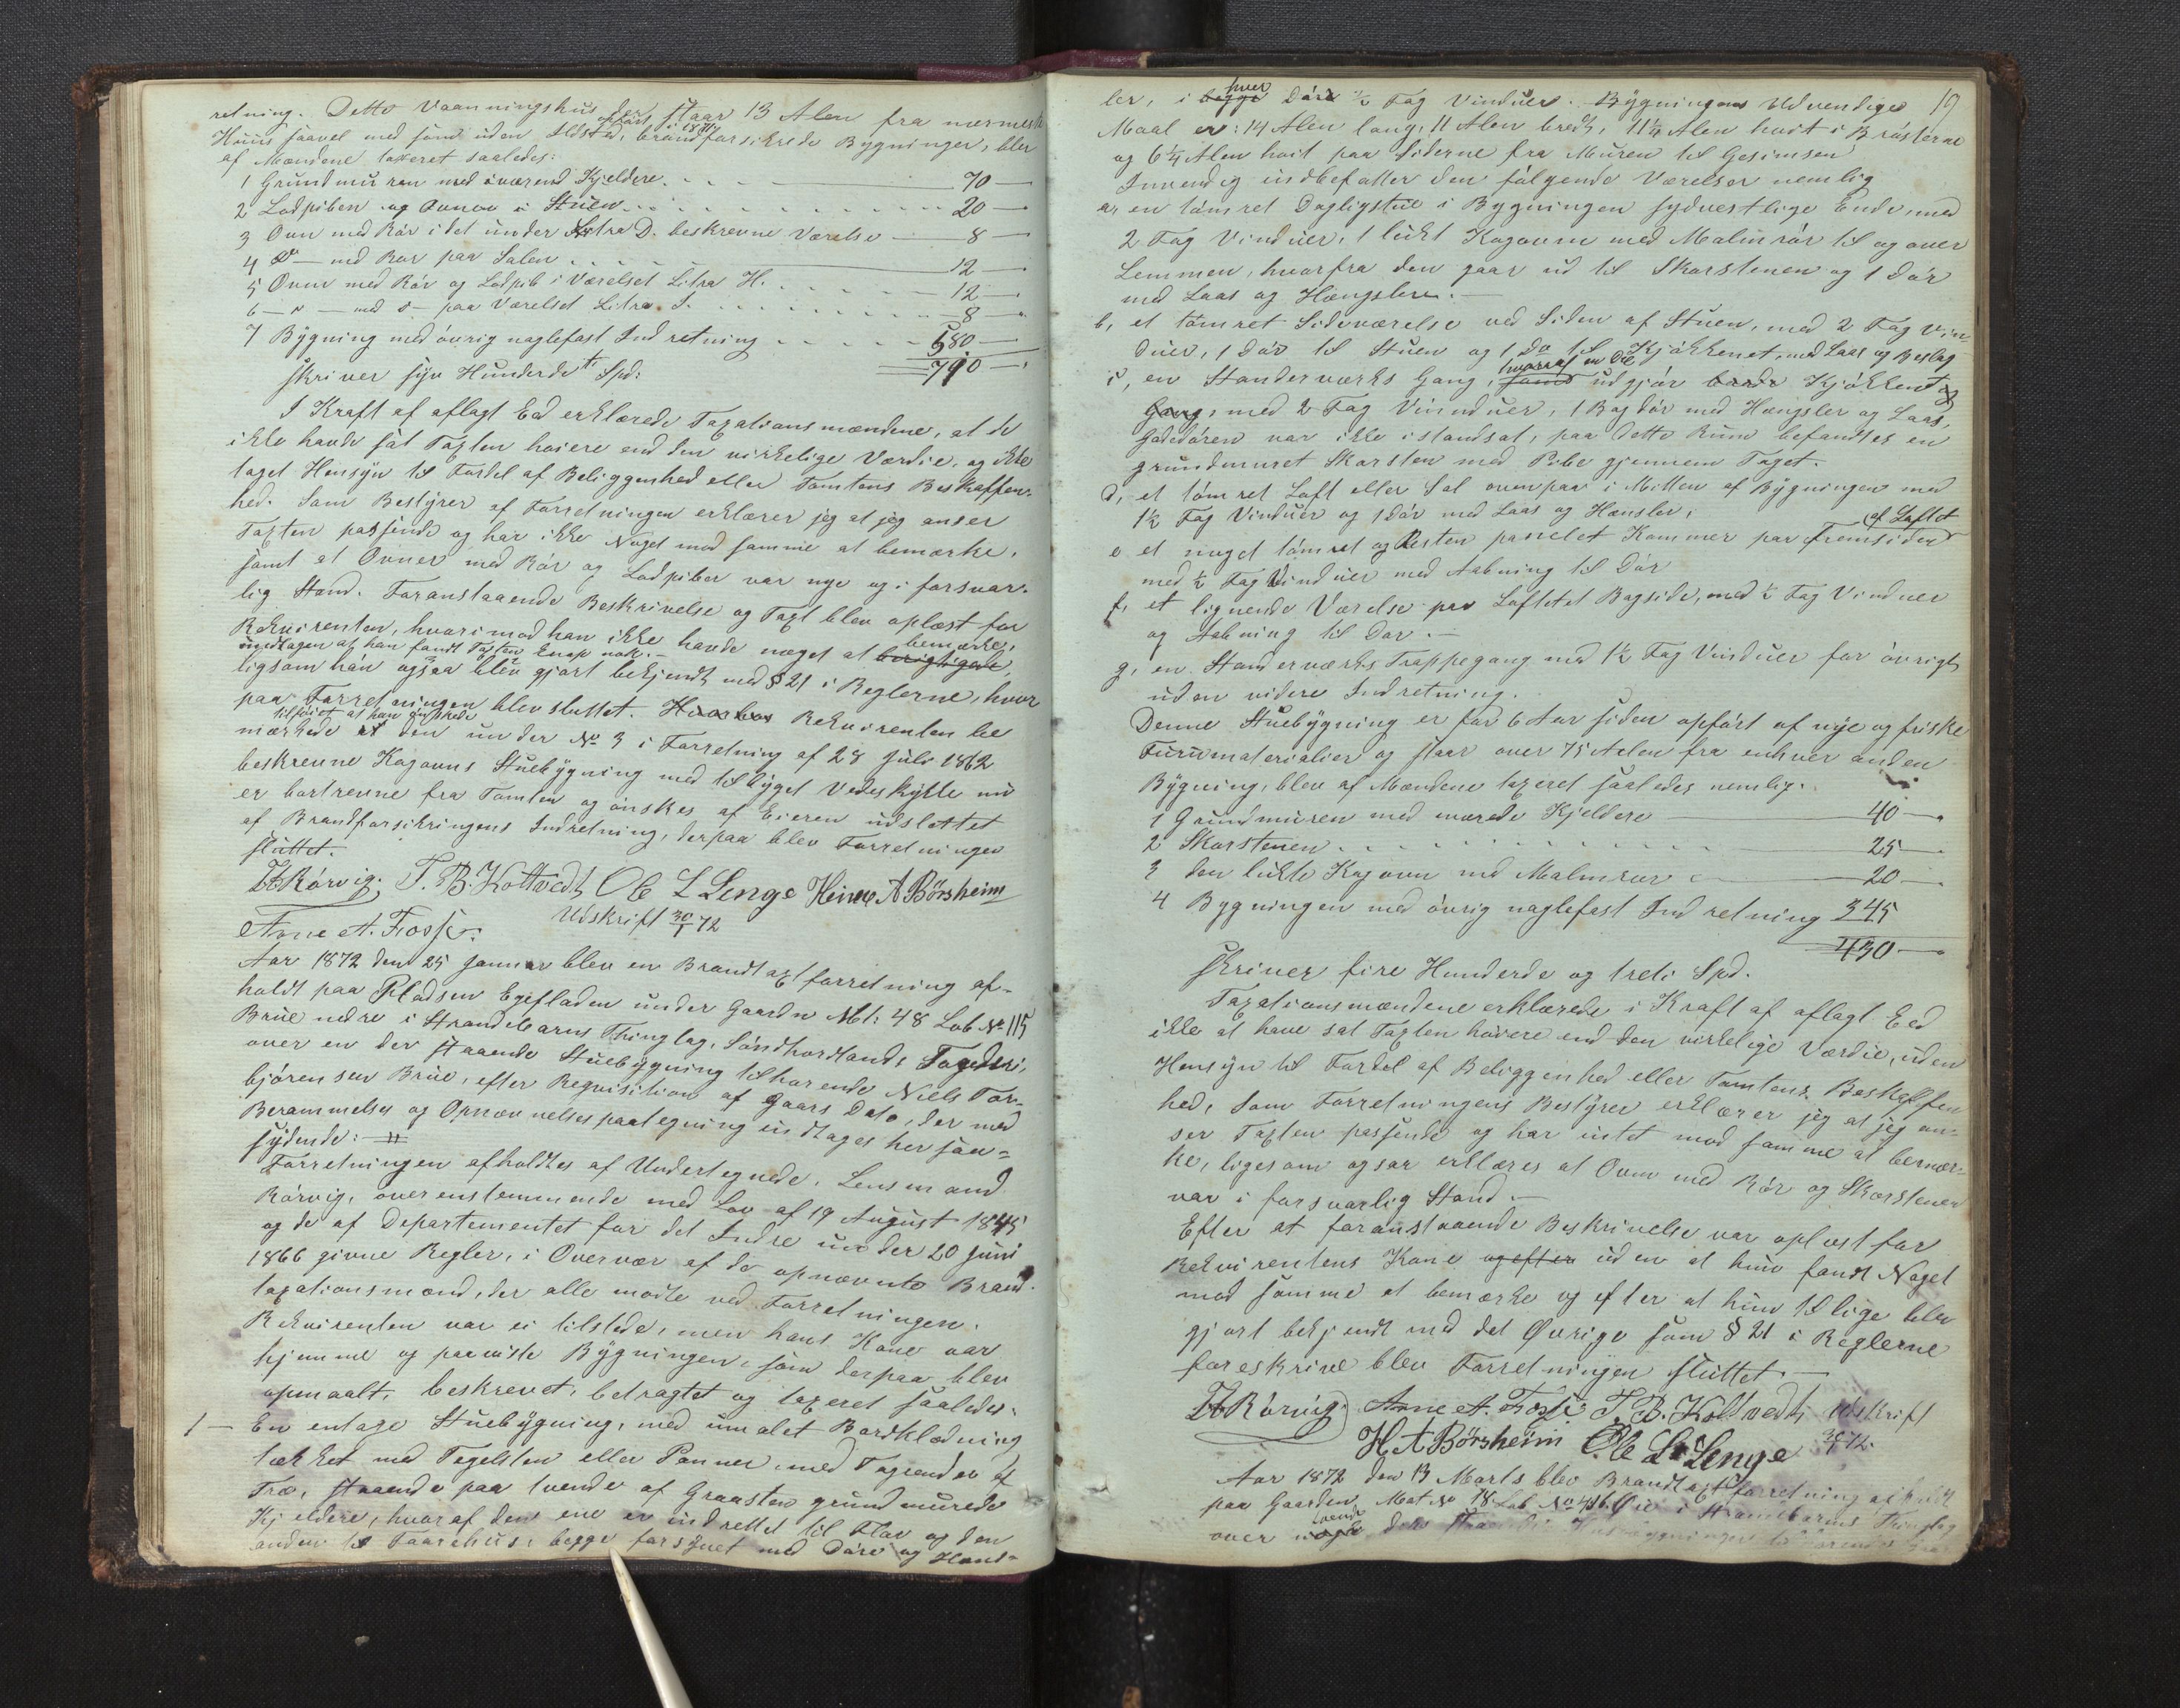 retning. Dette Vaaningshus der opført i 1871 staar 13 Alen fra nermeste
Huus saavel med som uden Ildsted, brandforsikrede Bygninger, blev
af Mændene taxeret saaledes:
1 Grundmuren med iværend Kjeldere. 70 —
2 Ladpiben og Ovnen i Stuen 20 —
3 Ovn med Rør i det under Litra D. beskrevne Værelse — 8 —
4 Do — med Rør paa Salen 12 —
5 Ovn med Rør og Ladpib i Værelset Litra H. 12 —
6 — " — med do — paa Værelset Litra I. 8 —
7 Bygning med øvrig naglefast Indretning 580 —
skriver syv Hunderde ti Spd: 710 —
I Kraft af aflagt Eed erklærede Taxationsmændene, at de
ikke havde sat Taxten høiere end den virkelige Værdie, og ikke
taget Hensyn til Fordel af Beliggenhed eller Tomtens Beskaffen-
hed. Som Bestyrer af Forretningen erklærer jeg at jeg anser
Taxten passende og har ikke Noget mod samme at bemærke,
samt at Ovner med Rør og Ladpiber var nye og i forsvar-
lig Stand. Foranstaaende Beskrivelse og Taxt blev oplæst for
Rekvirenten, hvorimod han ikke havde noget at berigtigede, bemærke,
undtagen at han fandt Taxten knap nok. —
ligsom han ogsaa blev gjort bekjendt med § 21 i Reglerne, hvor
paa Forretningen blev sluttet. Hvorhos Rekvirenten be
tilføiet at han ønskede
mærkede at den under No 3 i Forretning af 28 Juli 1862
beskrevne Kogovns Stuebygning med tilbygget Vedeskykke nu
er bortrevne fra Tomten og ønskes af Eieren udslettet
af Brandforsikringens Indretning, derpaa blev Forretningen
sluttet.
Rørvig. T. B. Koltvedt Ole L Lenge Heine A Børsheim
Arne A. Fosse. Udskrift 30/1 72
Aar 1872 den 25 Januar blev en Brandtaxtforretning af-
holdt paa Pladsen Egefladen under Gaarden Mt: 48 Lob No 115
Brue nedre i Strandebarms Thinglag, Søndhordlands Fogderi,
over en der staaende Stuebygning tilhørende Niels Tor-
bjørensen Brue, efter Reqvisition af Gaars Dato, der med
Berammelses og Opnævnelsespaategning indtages her saa-
lydende: — " —
Forretningen afholdtes af Undertegnede, Lensmand
Rørvig, overenstemmende med Lov af 19 August 1845
og de af Departementet for det Indre under 20 Juni
1866 givne Regler, i Overvær af de opnævnte Brand-
taxationsmænd, der alle mødte ved Forretningen.
Rekvirenten var ei tilstede, men hans Kone var
hjemme og paaviste Bygningen, som derpaa blev
opmaalt, beskrevet, betragtet og taxeret saaledes:
1 — En entage Stuebygning, med umalet Bordklædning
tækket med Tegelsten eller Panner, med Tagrender af
Træ, staaende paa tvende af Graasten grundmurede
Kjeldere, hvoraf den ene er indrettet til Flor og den
anden til Faarehus, begge forsynet med Døre og Hæns-
19
ler, i begge hver Døre ½ Fag Vinduer. Bygningens Udvendige
Maal er: 14 Alen lang, 11 Alen bredt, 11¼ Alen høit i Brøsterne
og 6¼ Alen høit paa Siderne fra Muren til Gesimsen
Indvendig indbefatter den følgende Værelser nemlig
a, en tømret Dagligstue i Bygningen sydvestlige Ende, med
2 Fag Vinduer, 1 lukt Kogovnn med Malmrør til og over
Lemmen, hvorfra den gaar ud til Skorstenen og 1 Dør
med Laas og Hængsler. —
b, et tømret Sideværelse ved Siden af Stuen, med 2 Fag Vin
duer, 1 Dør til Stuen og 1 Do til Kjøkkenet, med Laas og Beslag
c, en Standerværks Gang, som hvoraf en Del udgjør baade Kjøkkent og
Gang, med 2 Fag Vinnduer, 1 Bagdør med Hængsler og Laas,
Gadedøren var ikke istandsat, paa dette Rum befandtes en
grundmuret Skorsten med Pibe gjennem Taget.
d, et tømret Loft eller Sal ovenpaa i Mitten af Bygningen med
1½ Fag Vinduer og 1 Dør med Laas og Hænsler,
e et noget tømret og Resten panelet Kammer paa Fremsiden af Loftet
med ½ Fag Vinduer med Aabning til Dør
f, et lignende Værelse paa Loftetet Bagside, med ½ Fag Vinduer
og Aabning til Dør. —
g, en Standerværks Trappegang med 1½ Fag Vinduer for øvrigt
uden videre Indretning.
Denne Stuebygning er for 6 Aar siden opført af nye og friske
Furumaterialier og staar over 75 Alen fra enhver anden
Bygning, blev af Mændene taxeret saaledes nemlig.
1 Grundmuren med værede Kjeldere 40 —
2 Skorstenen 25 —
3 den lukte Kogovn med Malmrør 20 —
4 Bygningen med øvrig naglefast Indretning 345
430 —
skriver fire Hunderde og treti Spd.
Taxationsmændene erklærede i Kraft af aflagt Eed
ikke at have sat Taxten høiere end den virkelige Værdie, uden
Hensyn til Fordel af Beliggenhed eller Tomtens Beskaffen
hed, Som Forretningens Bestyrer erklærer jeg at jeg an-
ser Taxten passende og har intet mod samme at bemær-
ke, ligesom ogsaa erklæres at Ovnn med Rør og Skorstenen
var i forsvarlig Stand. —
Efter at foranstaaende Beskrivelse var oplæst for
Rekvirentens Kone og efter uden at hun fandt Noget
mod samme at bemærke og efter at hun tillige blev
gjort bekjendt med det Øvrige som § 21 i Reglerne
foreskrive blev Forretningen sluttet. —
Rørvig. Arne A. Fosse T. B. Koltvedt Udskrift
H A Børsheim Ole L Lenge 30/1 72.
Aar 1872 den 13 Marts blev Brandtaxtforretning afholdt
paa Gaarden Mat No 18 Lob No i Strandebarms Thinglag
over nogle tvende der staaende